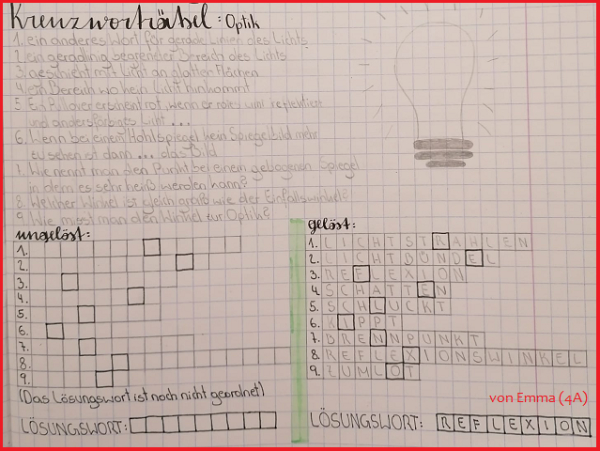 Kreuzworträtsel: Optik
1. ein anderes Wort für gerade Linien des Lichts
2. ein geradlinig begrenzter Bereich des Lichts
3. geschieht mit Licht an glatten Flächen
4. ein Bereich wo kein Licht hinkommt
5. Ein Pullover erscheint rot, wenn er rotes Licht reflektiert
und andersfarbiges Licht ...
6. Wenn bei einem Hohlspiegel kein Spiegelbild mehr
zu sehen ist dann ... das Bild
7. Wie nennt man den Punkt bei einem gebogenen Spiegel
in dem es sehr heiß werden kann?
8. Welcher Winkel ist gleich groß wie der Einfallswinkel?
9. Wie misst man den Winkel zur Optik?
ungelöst:
1.
2.
3.
4.
5.
6.
7.
8.
9.
(Das Lösungswort ist noch nicht geordnet)
LÖSUNGSWORT:
gelöst:
1. LICHTSTRAHLEN
2. LICHTBÜNDEL
3. REFLEXION
4. SCHATTEN
5. SCHLUCKT
6. KIPPT
7. BRENNPUNKT
8. REFLEXIONSWINKEL
9. ZUMLOT
von Emma (4A)
LÖSUNGSWORT: REFLEXION